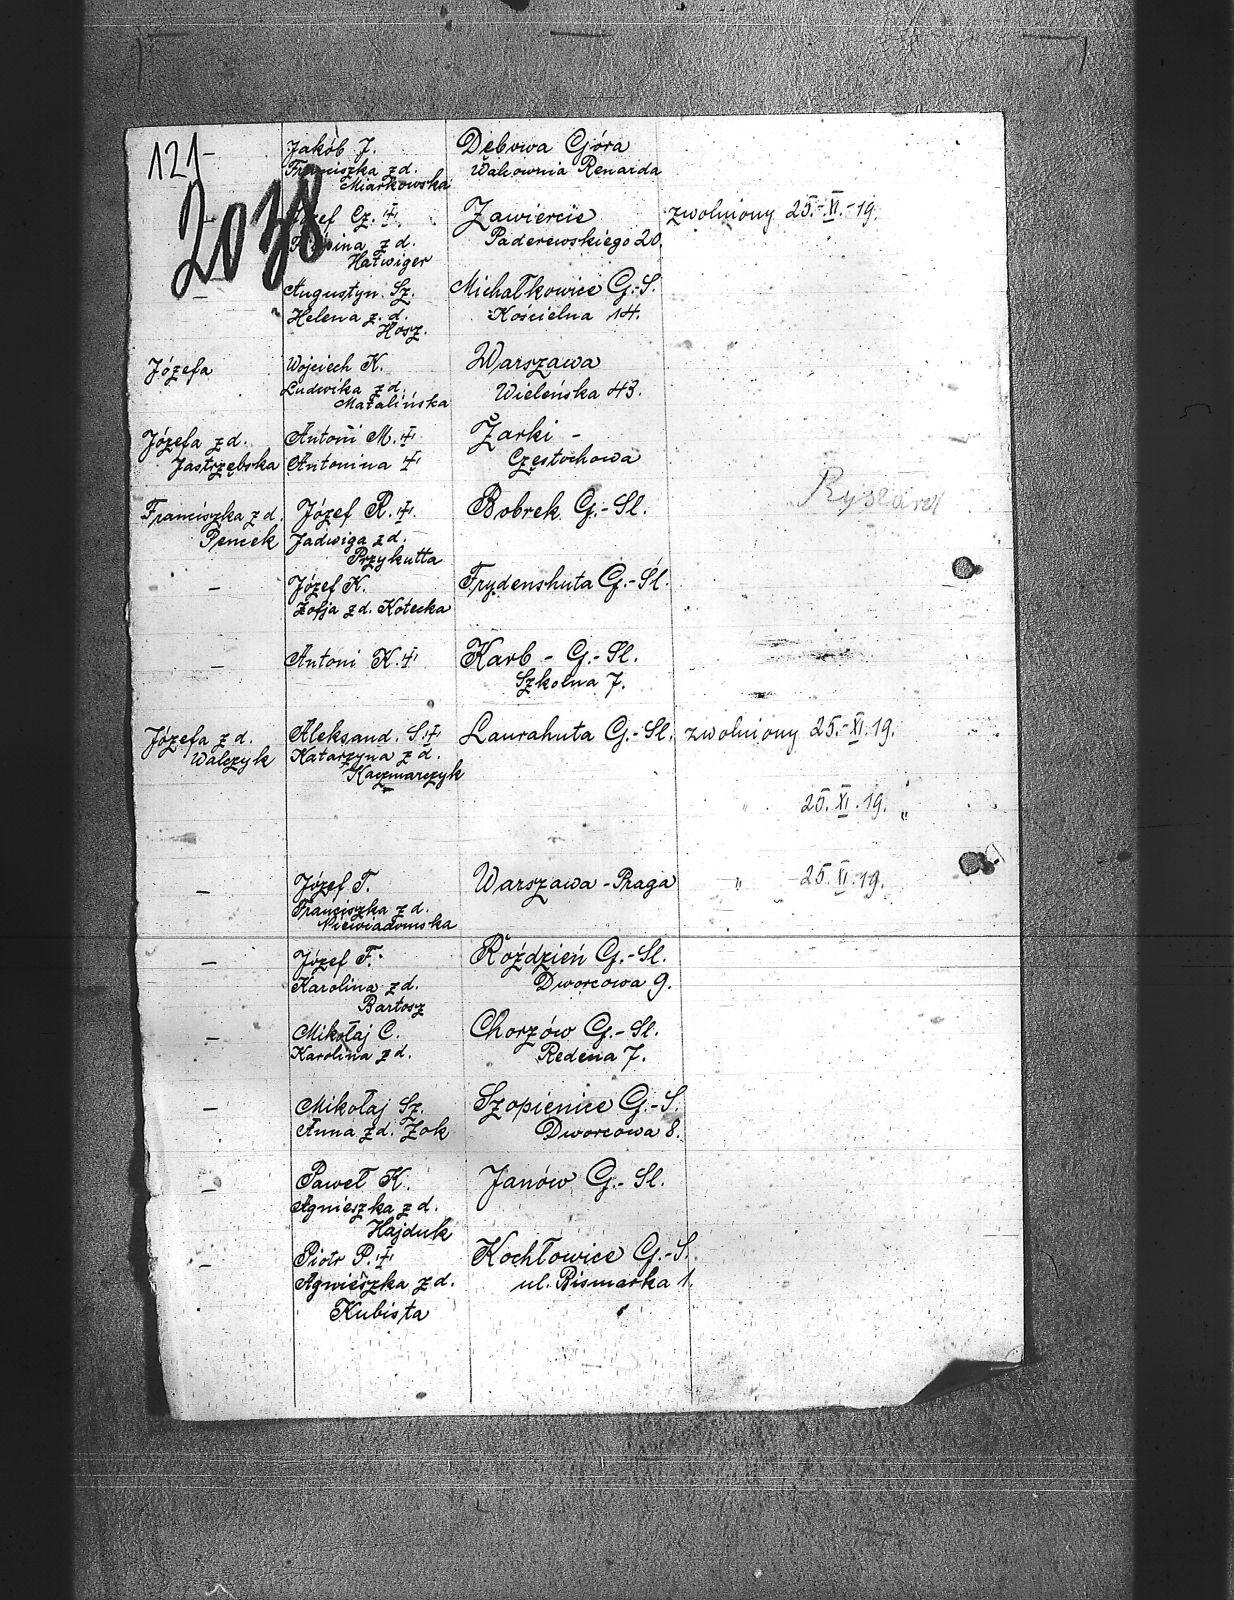 121-
2038
Jakób J.
Franciszka z d.
Miarkowska
Dębowa Góra
Walcownia Renarda
Józef Cz. ‡
z d.
Hatwiger
Zawiercie
Paderewskiego 20.
zwolniony 25.-XI.-19.
–
Augustyn. Sz.
Helena z. d.
Hosz.
Michałkowice G.-S.
Kościelna 14.
Józefa
Wojciech K.
Ludwika z d.
Matalińska
Warszawa
Wileńska 43.
Józefa z d.
Jastrzębska
Antoni M. ‡
Antonina ‡
Żarki -
Częstochowa
Franciszka z d.
Pencek
Józef R. ‡
Jadwiga z d.
Przykutta
Bobrek G.-Sl.
Ryszard
–
Józef K.
Zofja z d. Kotecka
Frydenshuta G.-Sl.
–
Antoni K. ‡
Karb - G.-Sl.
Szkolna 7.
Józefa z d.
Walczyk
Aleksand. S. ‡
Katarzyna z d.
Kaczmarczyk
Laurahuta G.-Sl.
zwolniony 25.-XI.19.
" 25.XI.19. "
–
Józef T.
Franciszka z d.
Niewiadomska
Warszawa - Praga
" 25.XI.19.
–
Józef F.
Karolina z d.
Bartosz
Roździeń G.-Sl.
Dworcowa 9.
–
Mikołaj C.
Karolina z d.
Chorzów G.-Sl.
Redena 7.
–
Mikołaj Sz.
Anna z d. Żok
Szopienice G.-S.
Dworcowa 8.
–
Paweł K.
Agnieszka z d.
Hajduk
Janów G.-Sl.
–
Piotr P. ‡
Agnieszka z d.
Kubista
Kochłowice G.-S.
ul. Bismarka 1.